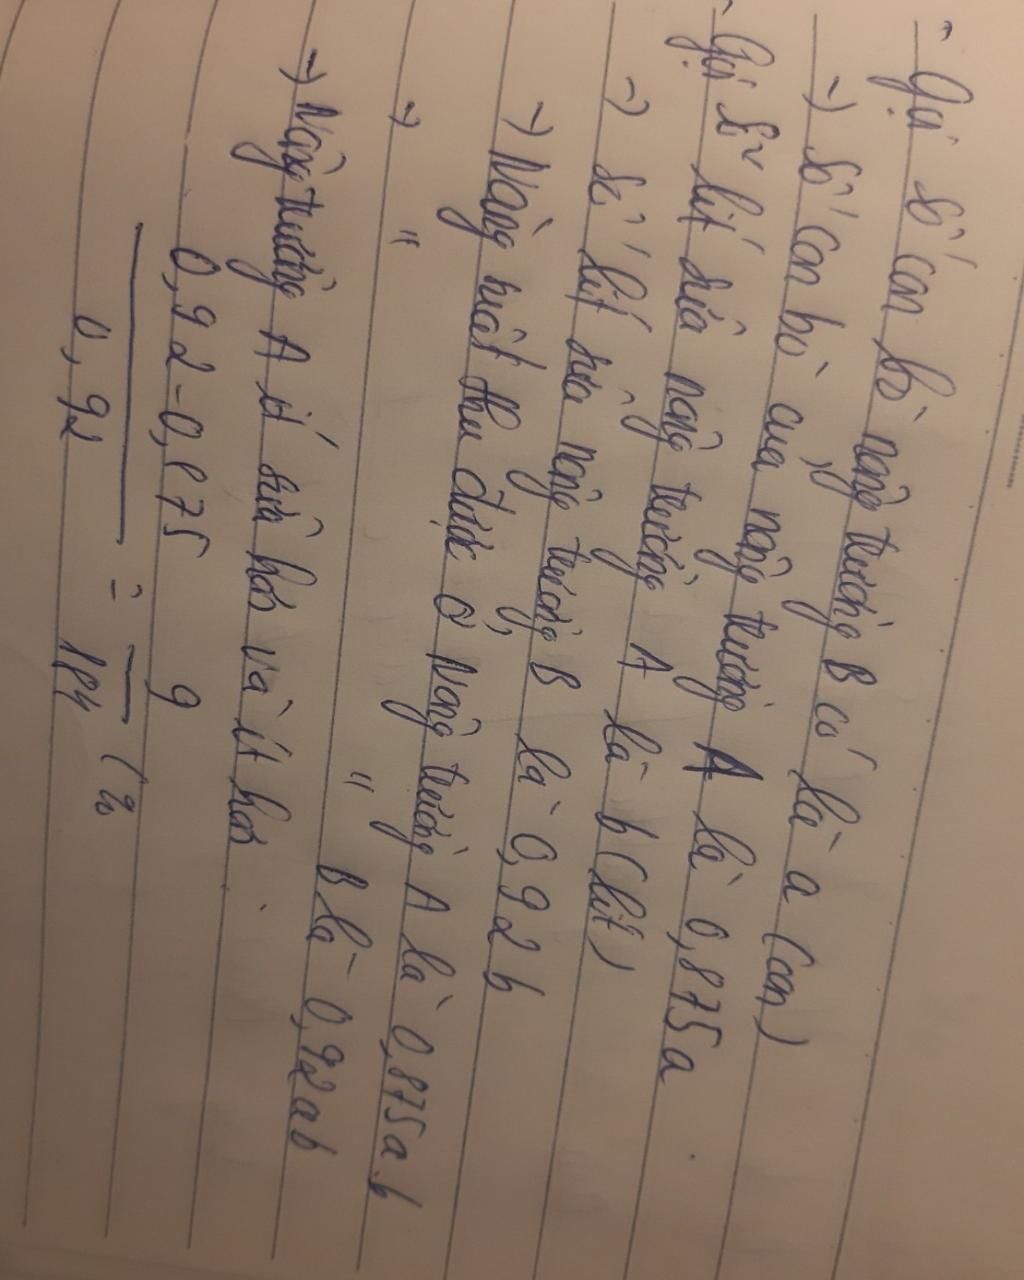 - Gọi số con bò nông trường B có là a (con)
→ Số con bò của nông trường A là 0,875a
- Gọi số lít sữa nông trường A là b (lít)
→ số lít sữa nông trường B là 0,92b
→ Năng suất thu được ở Nông trường A là 0,875a.b
→ " " B là 0,92ab
→ Nông trường A ít sữa hơn và ít hơn
0,92-0,875 / 0,92 = 9 / 184 (%